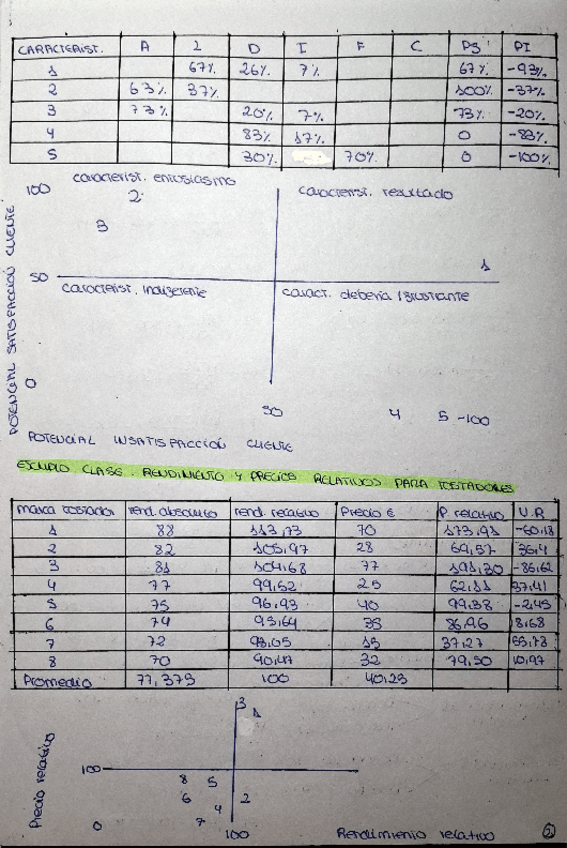 CARACTERIST. A L D I F C PS PI
1 67% 26% 7% 67% -93%
2 63% 37% 100% -37%
3 73% 20% 7% 73% -20%
4 83% 17% 0 -83%
5 30% 70% 0 -100%
100 caracterist. entusiasmo caracterist. resultado
2
3
1
50
caracterist. indiferente caract. debería / frustrante
0
50 4 5 -100
POTENCIAL SATISFACCIÓN CLIENTE
POTENCIAL INSATISFACCIÓN CLIENTE
EJEMPLO CLASE. RENDIMIENTO Y PRECIOS RELATIVOS PARA TOSTADORES
marca tostador rend. absoluto rend. relativo Precio € P. relativo V.R
1 88 113,73 70 173,91 -60,18
2 82 105,97 28 69,57 36,4
3 81 104,68 77 191,30 -86,62
4 77 99,52 25 62,11 37,41
5 75 96,93 40 99,38 -2,45
6 74 95,64 35 86,96 8,68
7 72 93,05 15 37,27 55,78
8 70 90,47 32 79,50 10,97
Promedio 77,375 100 40,25
3
1
100
8 5
6 2
4
7
0 100 Rendimiento relativo 2
Precio relativo